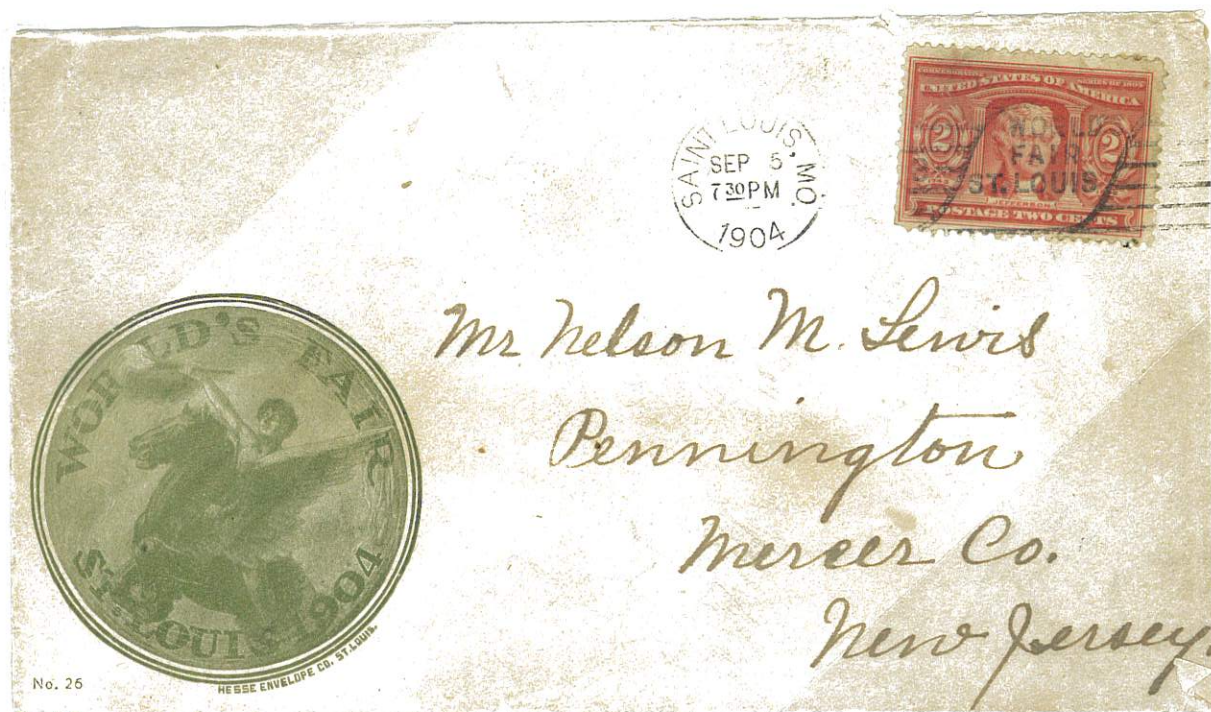 SAINT LOUIS, MO.
SEP 5
7 30 PM
1904
UNITED STATES OF AMERICA
2 2
WORLD
FAIR
ST. LOUIS
JEFFERSON
POSTAGE TWO CENTS
Mr Nelson M. Lewis
Pennington
Mercer Co.
New Jersey.
WORLD'S FAIR
ST. LOUIS 1904
HESSE ENVELOPE CO. ST. LOUIS.
No. 26